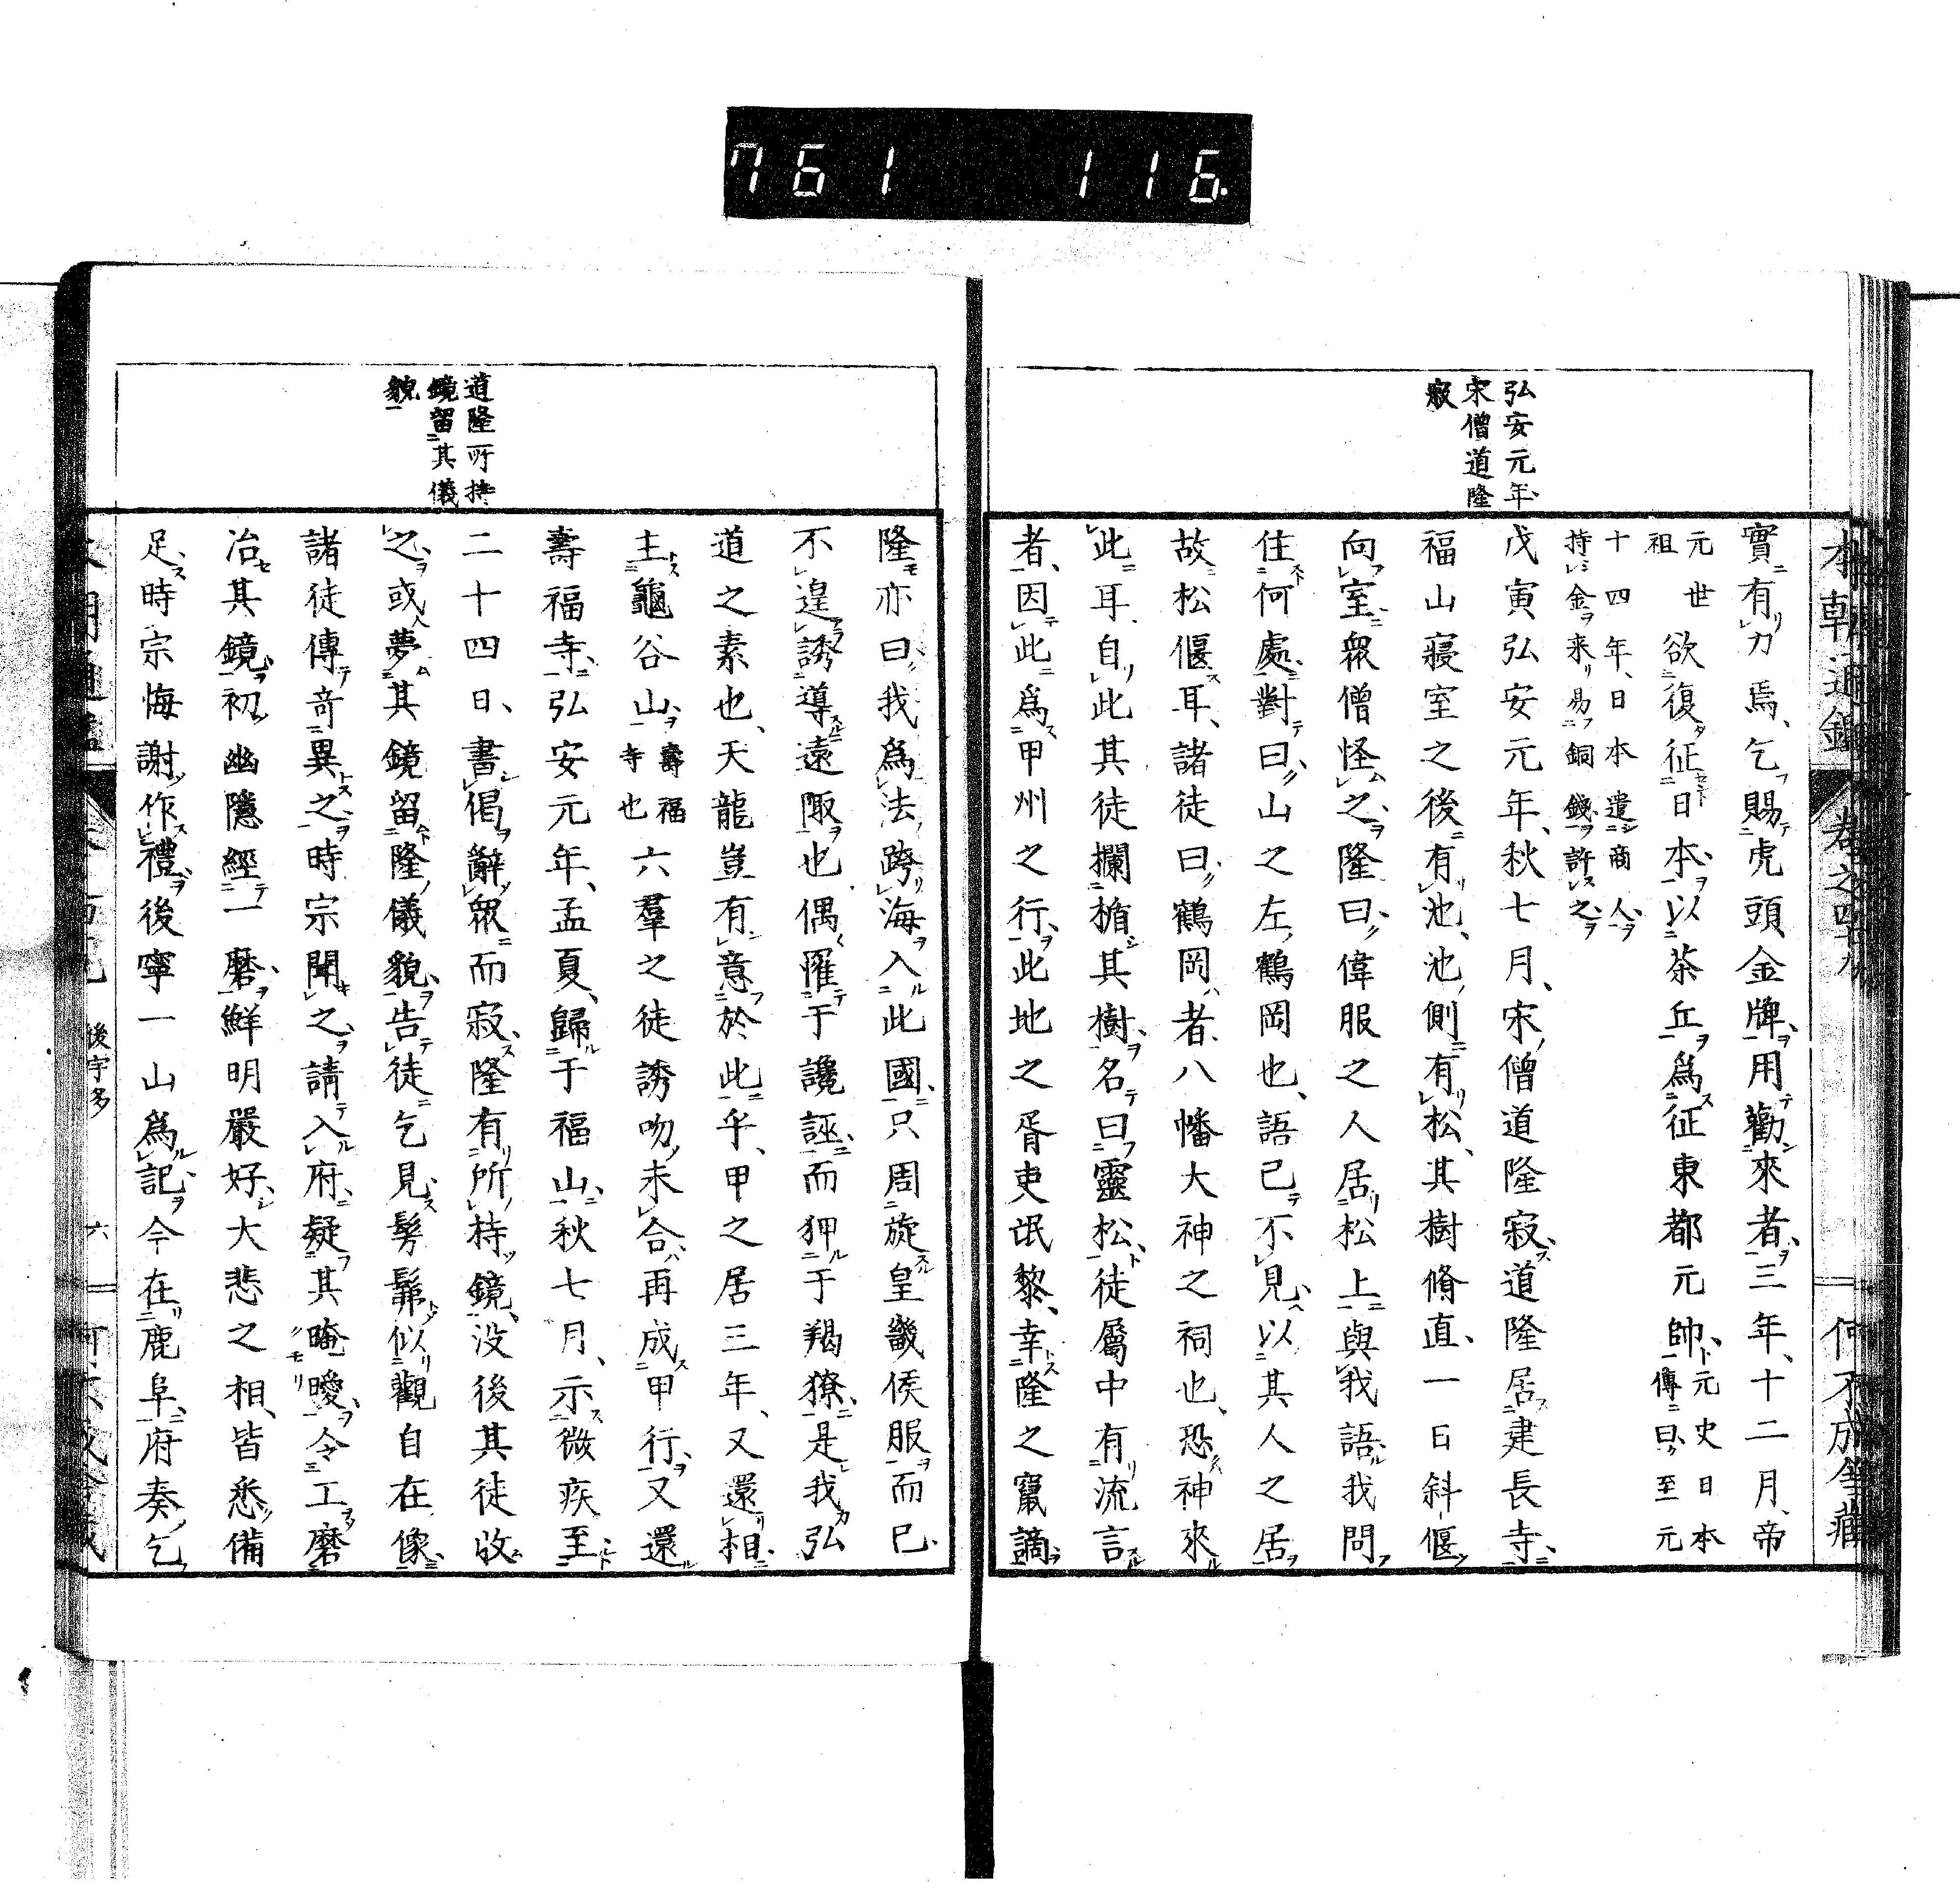 761 116
弘安元年
宋僧道隆
寂
實有力焉乞賜虎頭金牌用勸來者三年十二月帝
欲復征日本以茶丘爲征東都元帥
元世
祖
元史日本
傳曰至元
十四年日本遣商人
持金来易銅錢許之
戊寅弘安元年秋七月宋僧道隆寂道隆居建長寺
福山寢室之後有池池側有松其樹脩直一日斜偃
向室衆僧怪之隆曰偉服之人居松上與我語我問
住何處對曰山之左鶴岡也語已不見以其人之居
故松偃耳諸徒曰鶴岡者八幡大神之祠也恐神來
此耳自此其徒欄楯其樹名曰靈松徒屬中有流言
者因此爲甲州之行此地之胥吏氓黎幸隆之竄謫
道隆所持
鏡留其儀
貌
隆亦曰我爲法跨海入此國只周旋皇畿侯服而已
不遑誘導遠陬也偶罹于讒誣而狎于羯獠是我弘
道之素也天龍豈有意於此乎甲之居三年又還相
主龜谷山
壽福
寺也
六羣之徒誘吻未合再成甲行又還
壽福寺弘安元年孟夏歸于福山秋七月示微疾至
二十四日書偈辭衆而寂隆有所持鏡没後其徒收
之或夢其鏡留隆儀貌告徒乞見髣髴似觀自在像
諸徒傳奇異之時宗聞之請入府疑其晻曖令工磨
冶其鏡初幽隱經一磨鮮明嚴好大悲之相皆悉備
足時宗悔謝作禮後寧一山爲記今在鹿阜府奏乞
後宇多
六